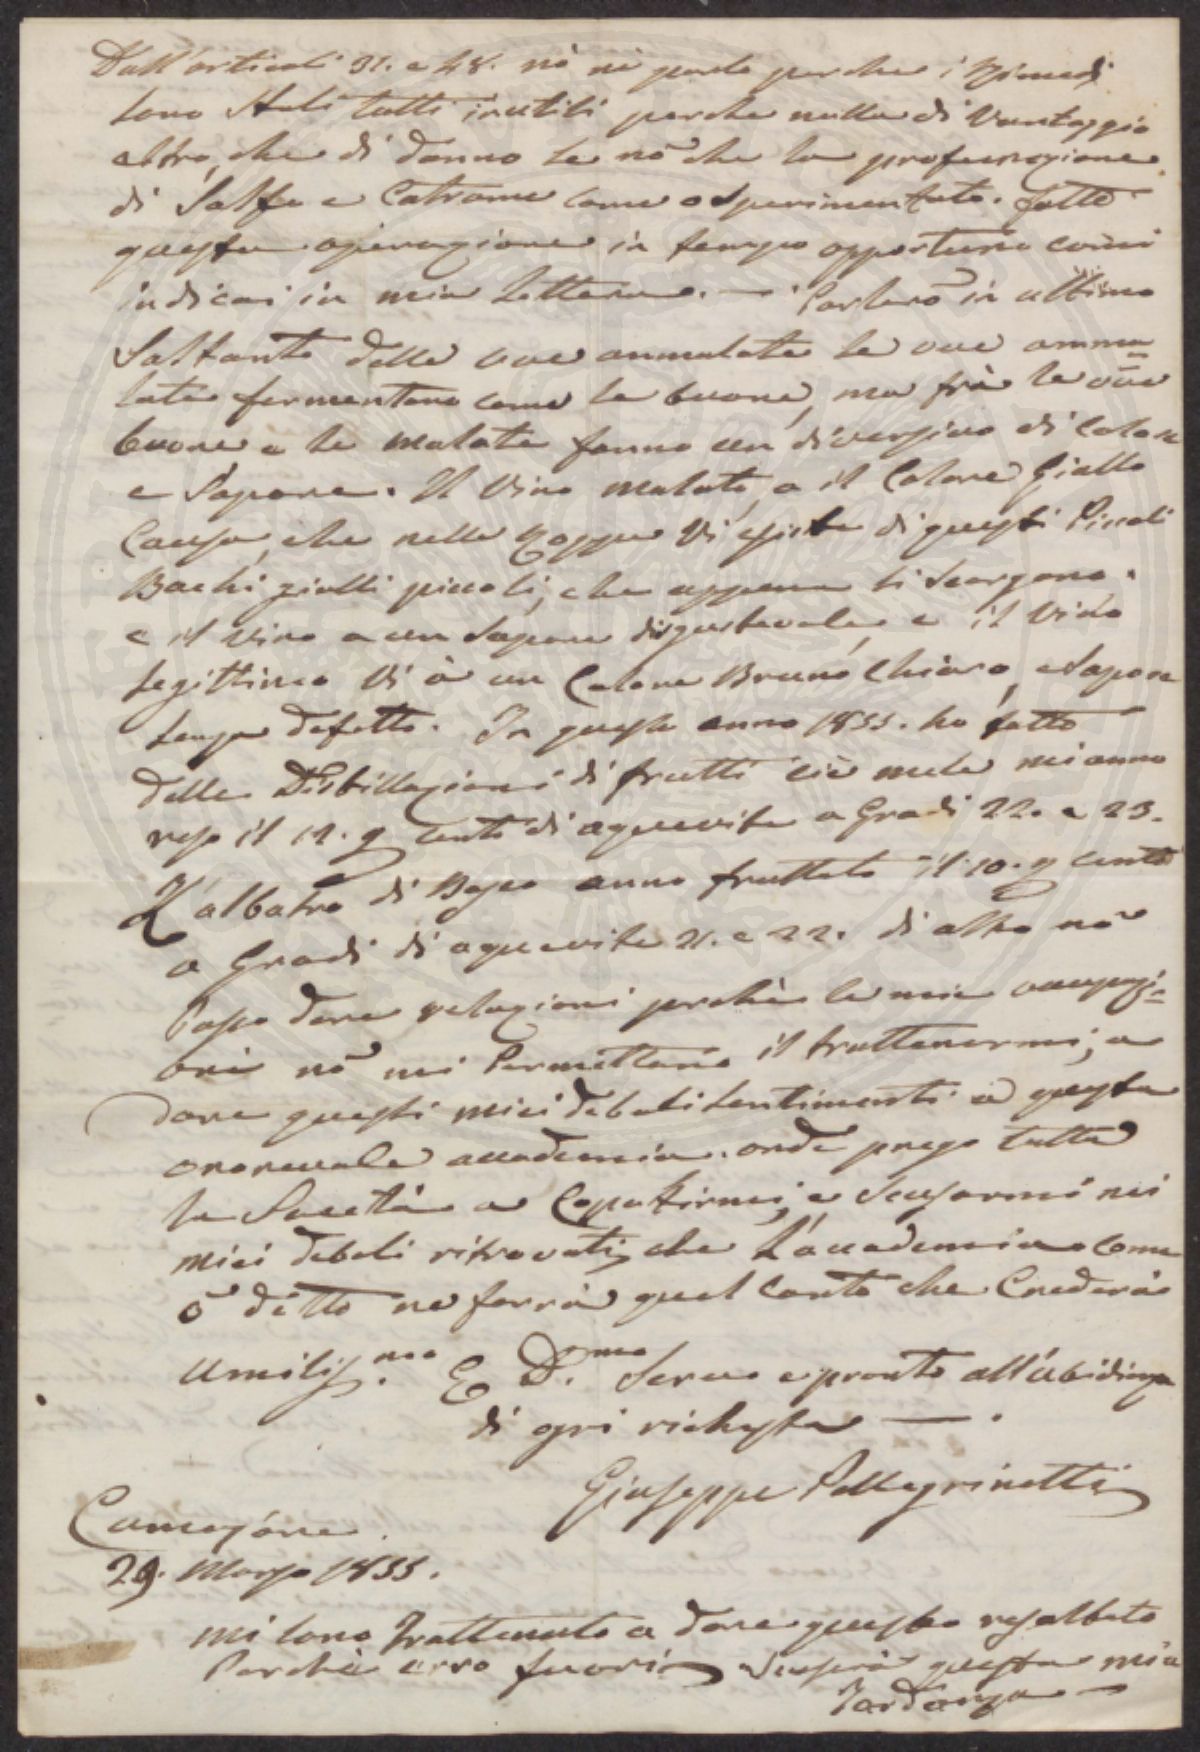 Dall'articoli 31. e 48. nò ne parlo perche i Rimedi
sono stati tutti inutili perche nulla di Vantaggio
altro, che di danno se nõ che la profumazione
di Solfo e Catrame come o sperimentato. fatto
questa operazione in tempo opportuno come
indicai in mia lettera. — Parlerò in ultimo
Soltanto delle uve ammalate le uve amma=
late fermentano come le buone, ma frà le uve
buone e le malate fanno un diversivo di Colore
e Sapore. Il Vino malato, a il Colore Giallo
Causa, che nelle Zoppe Vi esiste di questi Piccoli
Bachi gialli piccoli, che appena si scorgono.
e il vino a un Sapore disgustevole, e il Vino
legittimo Vi à un Colore Bruno Chiaro, e Sapore
senza difetto. In questo anno 1855. ho fatto
delle Distillazioni di frutti ciè mele mi anno
reso il 12. p cento di aquavite a Gradi 22. e 23.
L'albatro di Bosco anno fruttato il 10. p cento
a Gradi di aquavite 21. e 22. di altro nõ
Posso dare relazioni perchè le mie occupazi=
oni nõ mi Permettano il trattenermi, a
dare questi miei deboli sentimenti a questa
onorevole accademia. onde prego tutta
la Società a Copatirmi, e Scusarmi nei
miei deboli ritrovati, che L'accademia come
ò detto ne farrà quel conto che Crederà
Umiliss.mo E D.mo Servo e pronto all'ubidienza
di ogni richiesta — .
Giuseppe Pellegrinetti
Camajore
29. Marzo 1855.
mi sono Trattenuto a dare questo resoltato
Perchè ero fuori, Scuserà questa mia
Tardanza —